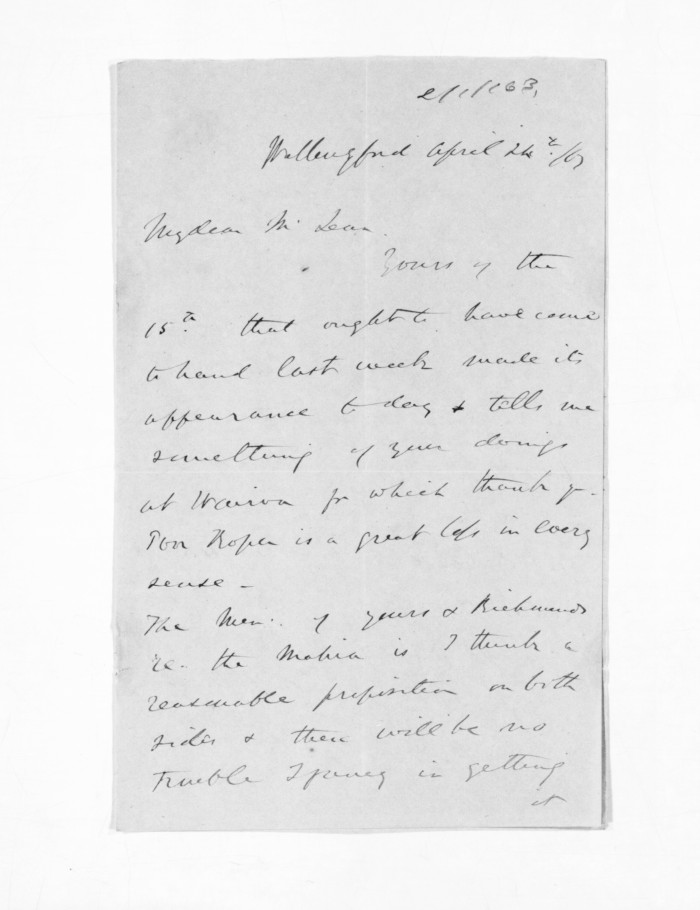 Wallingford April 24th /67
My dear McLean
Yours of the
15th. that ought to have come
to hand last week made its
appearance to day & tells me
something of your doings
at Wairoa for which thank yo-
Poor Kopu is a great loss in every
sense -
The Mem:. of yours & Richmonds
re. the Mahia is I think a
reasonable proposition on both
sides & there will be no
trouble I fancy in getting
it